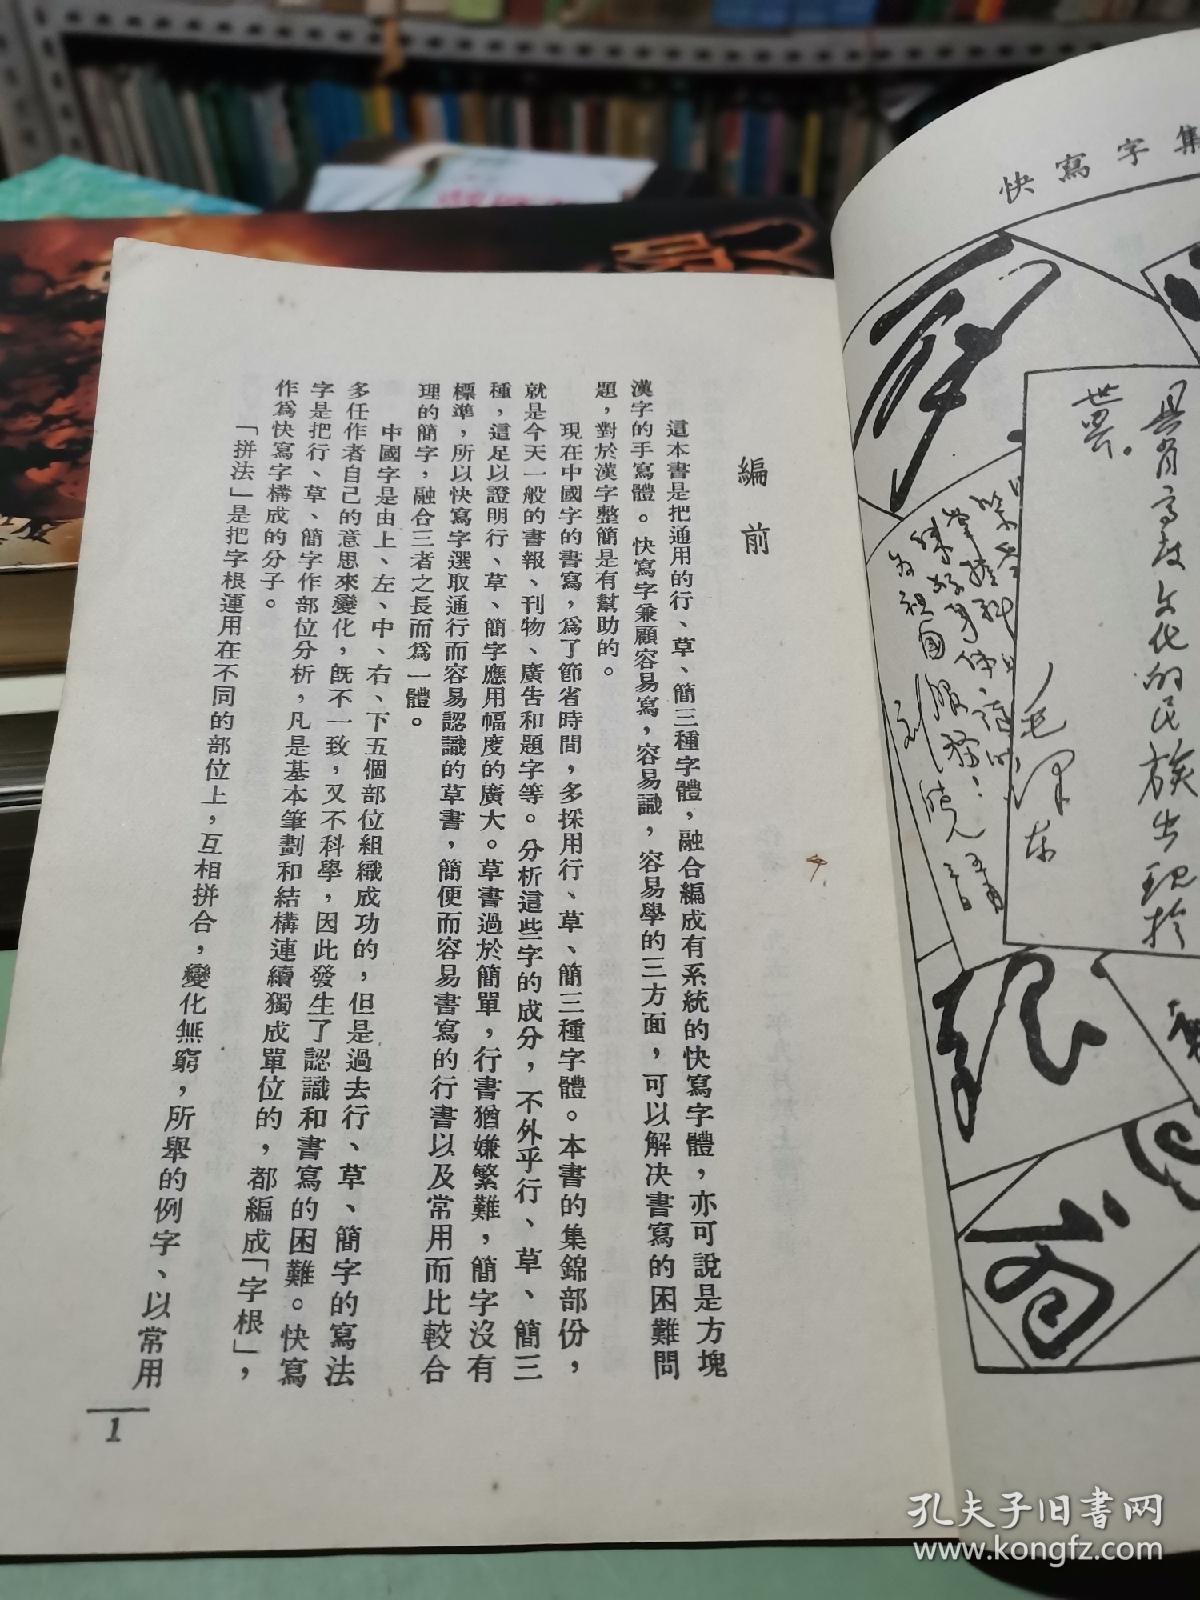 快寫字集
具有高度文化的民族出現於
世界。
毛澤东
為祖國
編前
這本書是把通用的行、草、簡三種字體，融合編成有系統的快寫字體，亦可說是方塊
漢字的手寫體。快寫字兼顧容易寫，容易識，容易學的三方面，可以解決書寫的困難問
題，對於漢字整簡是有幫助的。
現在中國字的書寫，爲了節省時間，多採用行、草、簡三種字體。本書的集錦部份，
就是今天一般的書報、刊物、廣告和題字等。分析這些字的成分，不外乎行、草、簡三
種，這足以證明行、草、簡字應用幅度的廣大。草書過於簡單，行書猶嫌繁難，簡字沒有
標準，所以快寫字選取通行而容易認識的草書，簡便而容易書寫的行書以及常用而比較合
理的簡字，融合三者之長而爲一體。
中國字是由上、左、中、右、下五個部位組織成功的，但是過去行、草、簡字的寫法
多任作者自己的意思來變化，旣不一致，又不科學，因此發生了認識和書寫的困難。快寫
字是把行、草、簡字作部位分析，凡是基本筆劃和結構連續獨成單位的，都編成「字根」，
作爲快寫字構成的分子。
「拼法」是把字根運用在不同的部位上，互相拼合，變化無窮，所舉的例字、以常用
1
孔夫子旧书网
www.kongfz.com